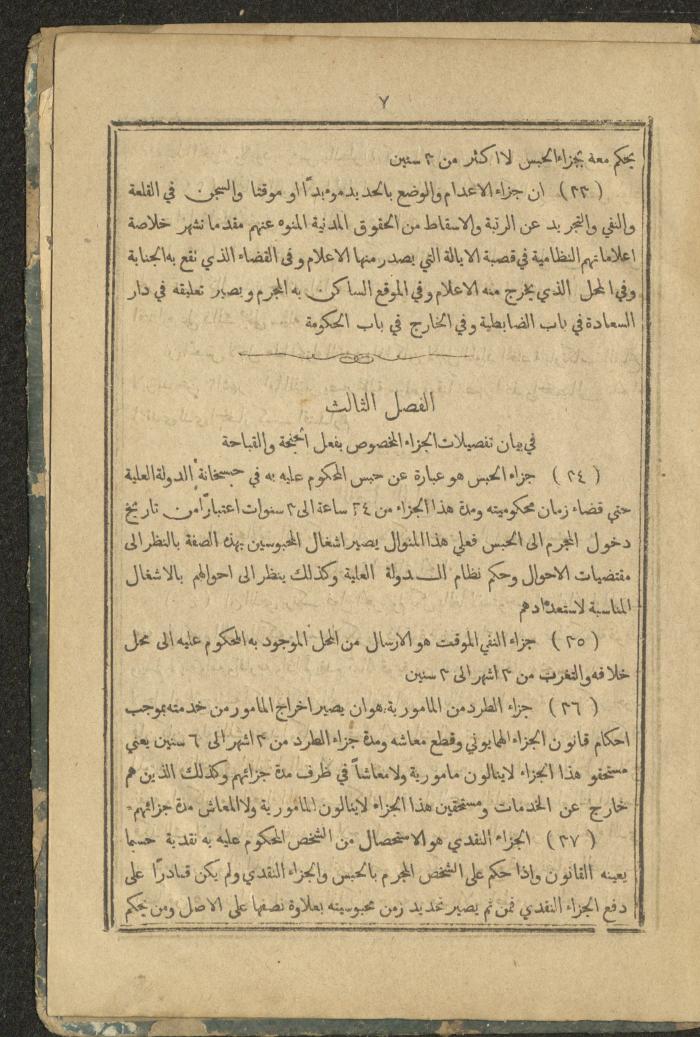 ٧
يحكم معه بجزاء الحبس لا اكثر من ٣ سنين
( ٢٣ ) ان جزاء الاعدام والوضع بالحديد موبدًا او موقتا والسجن في القلعة
والنفي والتجريد عن الرتبة والاسقاط من الحقوق المدنية المنوه عنهم مقدما تشهر خلاصة
اعلاماتهم النظامية في قصبة الايالة التي يصدر منها الاعلام وفي القضاء الذي تقع به الجناية
وفي المحل الذي يخرج منه الاعلام وفي الموقع الساكن به المجرم ويصير تعليقه في دار
السعادة في باب الضابطية وفي الخارج في باب الحكومة
الفصل الثالث
في بيان تفصيلات الجزاء المخصوص بفعل الجنحة والقباحة
( ٢٤ ) جزاء الحبس هو عبارة عن حبس المحكوم عليه به في حبسخانة الدولة العلية
حتي قضاء زمان محكوميته ومدة هذا الجزاء من ٢٤ ساعة الى ٣ سنوات اعتبارًا من تاريخ
دخول المجرم الى الحبس فعلي هذا المنوال يصير اشغال المحبوسين بهذه الصفة بالنظر الى
مقتضيات الاحوال وحكم نظام الـدولة العلية وكذلك ينظر الى احوالهم بالاشغال
المناسبة لاستعدادهم
( ٢٥ ) جزاء النفي الموقت هو الارسال من المحل الموجود به المحكوم عليه الى محل
خلافه والتغرب من ٣ اشهر الى ٣ سنين
( ٢٦ ) جزاء الطرد من المامورية هو ان يصير اخراج المامور من خدمته بموجب
احكام قانون الجزاء الهمايوني وقطع معاشه ومدة جزاء الطرد من ٣ اشهر الى ٦ سنين يعني
مستحقو هذا الجزاء لاينالون مامورية ولا معاشاً في ظرف مدة جزائهم وكذلك الذين هم
خارج عن الخدمات ومستحقين هذا الجزاء لاينالون المامورية ولا المعاش مدة جزائهم
( ٢٧ ) الجزاء النقدي هو الاستحصال من الشخص المحكوم عليه به نقدية حسبما
يعينه القانون واذا حكم على الشخص المجرم بالحبس والجزاء النقدي ولم يكن قادرًا على
دفع الجزاء النقدي فمن ثم يصير تحديد زمن محبوسيته بعلاوة نصفها على الاصل ومن يحكم